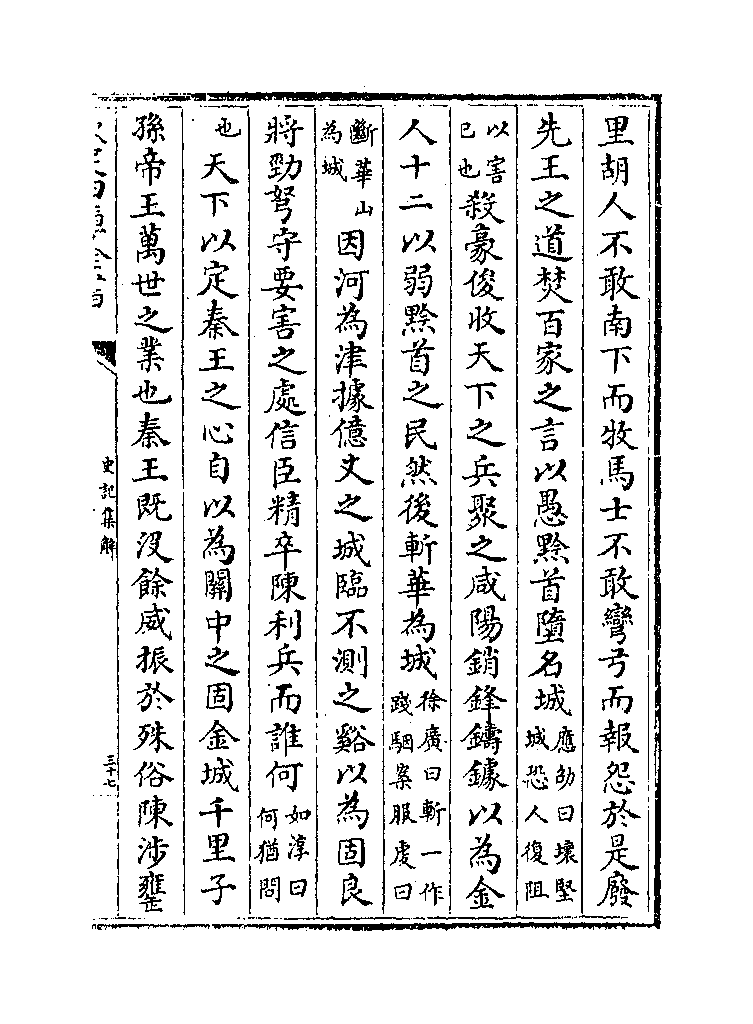 里胡人不敢南下而牧馬士不敢彎弓而報怨於是廢
先王之道焚百家之言以愚黔首墮名城應劭曰壞堅城恐人復阻
以害已也殺豪俊收天下之兵聚之咸陽銷鋒鑄鐻以為金
人十二以弱黔首之民然後斬華為城徐廣曰斬一作踐駰案服虔曰
斷華山為城因河為津據億丈之城臨不測之谿以為固良
將勁弩守要害之處信臣精卒陳利兵而誰何如淳曰何猶問
也天下以定秦王之心自以為關中之固金城千里子
孫帝王萬世之業也秦王既沒餘威振於殊俗陳涉甕
史記集解
三十七